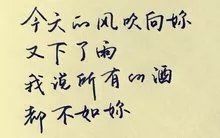 今天的风吹向妳
又下了雨
我说所有的酒
都不如妳